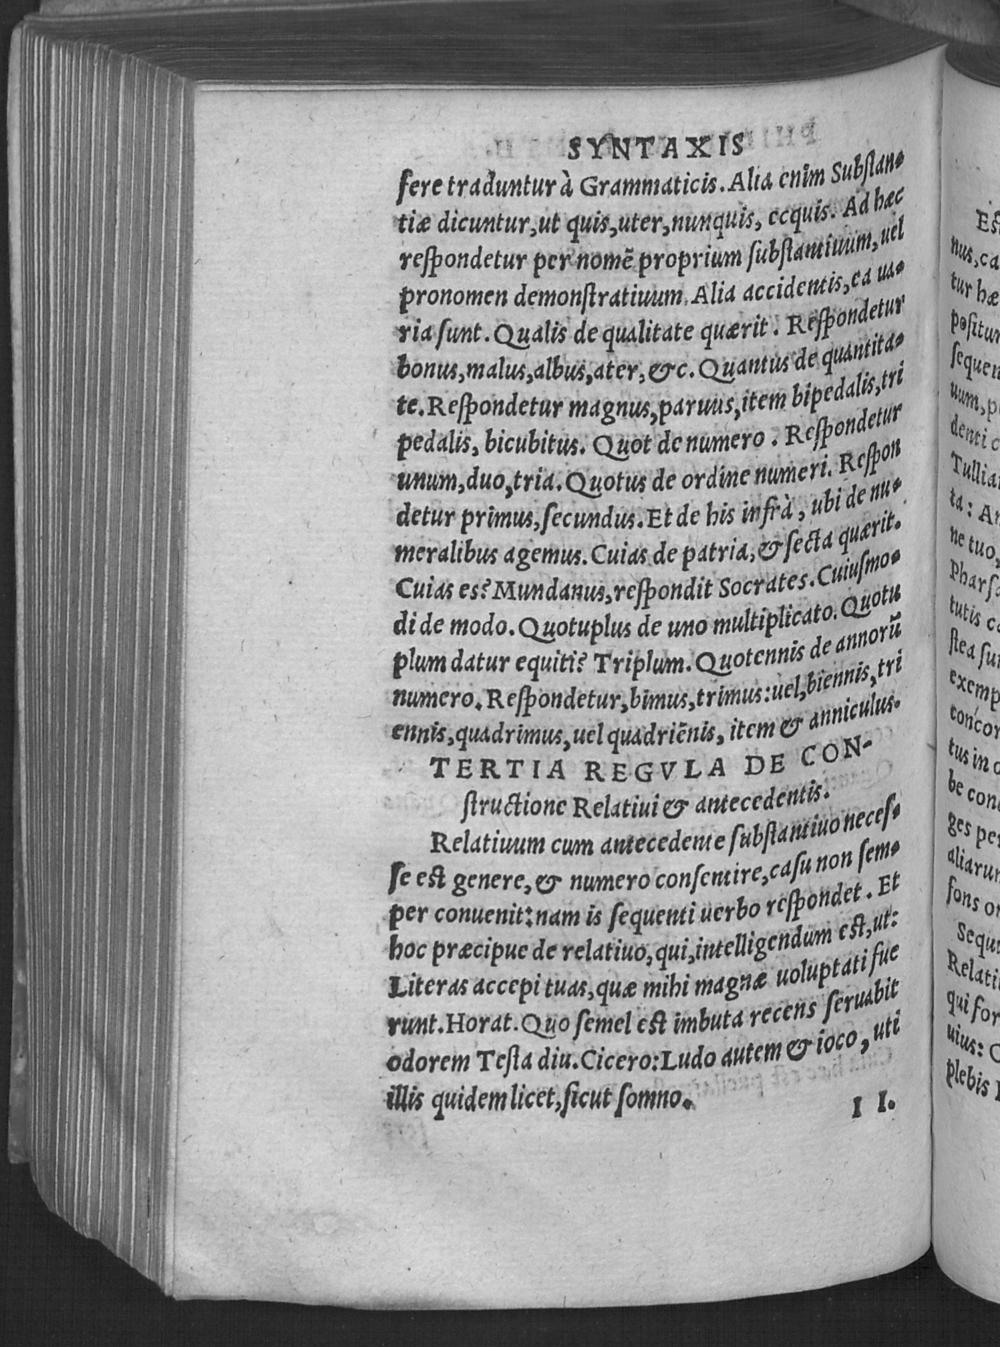 SYNTAXIS
fere traduntur à Grammaticis. Alia enim Substan-
tiæ dicuntur, ut quis, uter, nunquis, ecquis. Ad hæc
respondetur per nomē proprium substantiuum, uel
pronomen demonstratiuum. Alia accidentis, ea ua-
ria sunt. Qualis de qualitate quærit. Respondetur
bonus, malus, albus, ater, &c. Quantus de quantita-
te. Respondetur magnus, paruus, item bipedalis, tri
pedalis, bicubitus. Quot de numero. Respondetur
unum, duo, tria. Quotus de ordine numeri. Respon
detur primus, secundus. Et de his infrà, ubi de nu-
meralibus agemus. Cuias de patria, & secta quærit.
Cuias es? Mundanus, respondit Socrates. Cuiusmo-
di de modo. Quotuplus de uno multiplicato. Quotu
plum datur equiti? Triplum. Quotennis de annorū
numero. Respondetur, bimus, trimus: uel, biennis, tri
ennis, quadrimus, uel quadriēnis, item & anniculus.
TERTIA REGVLA DE CON-
structione Relatiui & antecedentis.
Relatiuum cum antecedente substantiuo neces-
se est genere, & numero consentire, casu non sem-
per conuenit: nam is sequenti uerbo respondet. Et
hoc præcipue de relatiuo, qui, intelligendum est, ut:
Literas accepi tuas, quæ mihi magnæ uoluptati fue
runt. Horat. Quo semel est imbuta recens seruabit
odorem Testa diu. Cicero: Ludo autem & ioco, uti
illis quidem licet, sicut somno.
I I.
Est
nus, ca
tur hæ
positum
sequen
uum, p
denti c
Tullia
ta: An
ne tuo,
Pharsa
tutis c
stea su
exemp
concor
tus in
be con
ges per
aliarum
fons or
Sequ
Relati
qui for
uius:
plebis